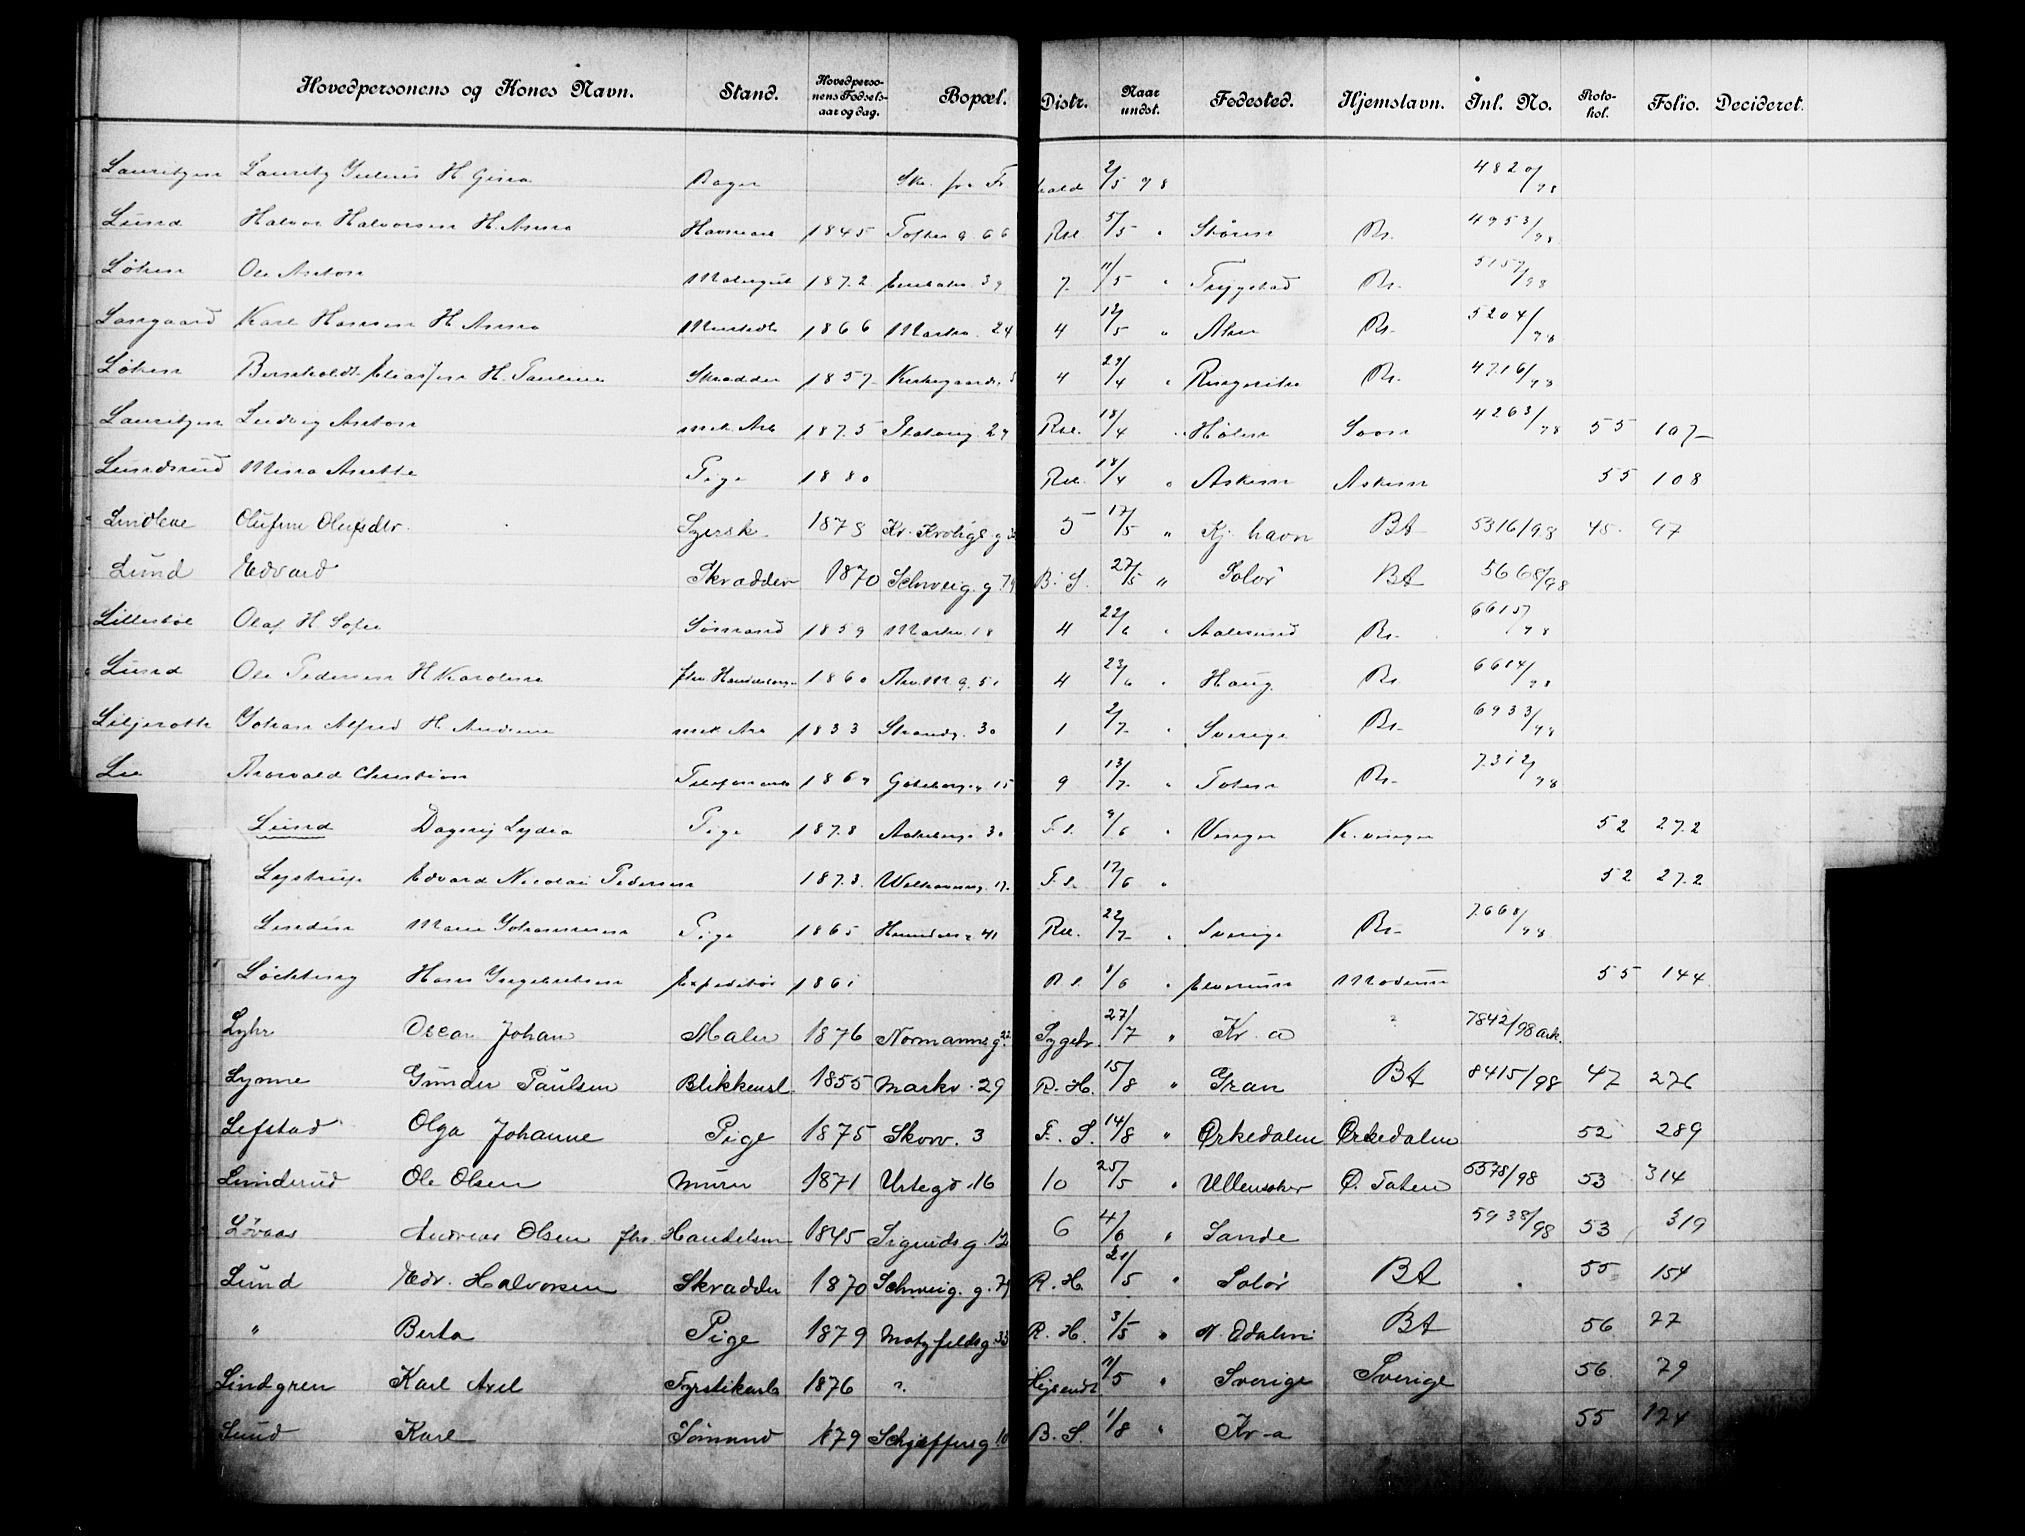 Hovedpersonens og Kones Navn. Stand. Hovedpersonens Fødselsaar og dag. Bopæl. Distr. Naar undst. Fødested. Hjemstavn. Inl. No. Protokol. Folio. Decideret.
Lauritzen Lauritz Julius H Gina Bager 2/5 98 4820/98
Lund Halvor Halvorsen H. Anna 1845 Toftes g. 66 Rst. 5/5 " Støren Bt. 4953/98
Løken Ole Anton Malergut 1872 39 7 11/5 " Trygstad Bt. 5157/98
Langaard Karl Hansen H Anna 1866 Markv. 24 4 12/5 " Aker Bt. 5204/98
Løken Berntholdt H. Pauline Skrædder 1857 Kirkegaards. 4 29/4 " Ringerike Bt. 4716/98
Lauritzen Ludvig Anton mek. Arb 1875 27 Rst. 18/4 " Hølen Soon 4263/98 55 107
Lundsrud Mina Anette Pige 1880 Rst. 18/4 " Askim Askim 55 108
Lindløve Olufine Olufsdtr. Syersk. 1878 5 17/5 " Kj. havn Bt 5316/98 45 97
Lund Edvard Skrædder 1870 Schweig. g. 79 B. S. 27/5 " Solør Bt 5668/98
Lillestøl Olaf H Sofie Sømand 1859 Markv. 18 4 22/6 " Aalesund Bt. 6615/98
Lund Ole Pedersen H Karoline fhv. Handelsm. 1860 Thv. M. g. 51 4 23/6 " Haug Bt. 6614/98
Liljeroth Johan Alfred H. Andrine mek Arb 1833 Strandg. 30 1 2/7 " Sverige Bt. 6933/98
Lie Thorvald Christian Telefonarb 1869 Göteborgg. 15 9 13/7 " Toten Bt. 7312/98
Lund Dagny Lydia Pige 1878 Aakebergv. 30 F. S. 9/6 " Vinger Kr. vinger 52 272
Lystrup Edvard Nicolai Pedersen 1873 Welhavensg. 17 F. S. 17/6 " 52 272
Linden Marie Johannesen Pige 1865 41 Rst. 22/7 " Sverige Bt. 7668/98
Løchting Hans Ingebretsen Expeditør 1861 R. S. 1/6 " Elverum Modum 55 144
Lyhr Oscar Johan Maler 1876 Normannsg. 22 Sygeh. 27/7 " Kr. a ? 7842/98 ark.
Lynne Gunder Paulsen Blikkensl. 1855 Markv. 29 R. H. 15/8 " Gran Bt 8415/98 47 276
Lefstad Olga Johanne Pige 1875 Skovv. 3 F. S. 14/8 " Ørkedalen Ørkedalen 52 289
Lunderud Ole Olsen Murer 1871 Urtegd. 16 10 25/5 " Ullensaker Ø. Toten 5578/98 53 314
Løvaas Andreas Olsen fhv. Handelsm 1845 Sigurdsg. 12 6 4/6 " Sande 5938/98 53 319
Lund Edv. Halvorsen Skrædder 1870 Schweig. g. 79 R. H. 21/5 " Solør Bt " 55 154
" Berta Pige 1879 Motzfeldsg. 33 R. H. 3/5 " N. Odalen Bt 56 77
Lindgren Karl Axel Fyrstikarb 1876 ? Hjemdt 11/5 " Sverige Sverige 56 79
Lund Karl Sømand 1879 Schjøffersg. 10 B. S. 1/8 " Kr-a 55 174